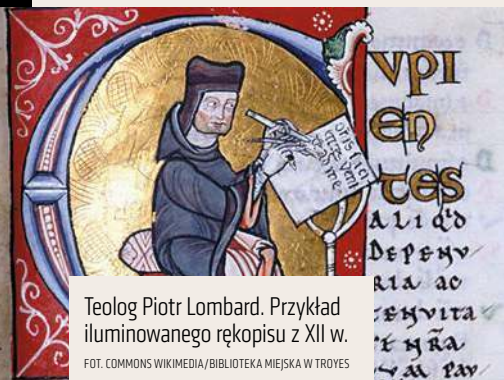 VPI
EN
TES
ALIQ'D
DEPENV
RIA AC
TENVITA
Teolog Piotr Lombard. Przykład
iluminowanego rękopisu z XII w.
FOT. COMMONS WIKIMEDIA/BIBLIOTEKA MIEJSKA W TROYES